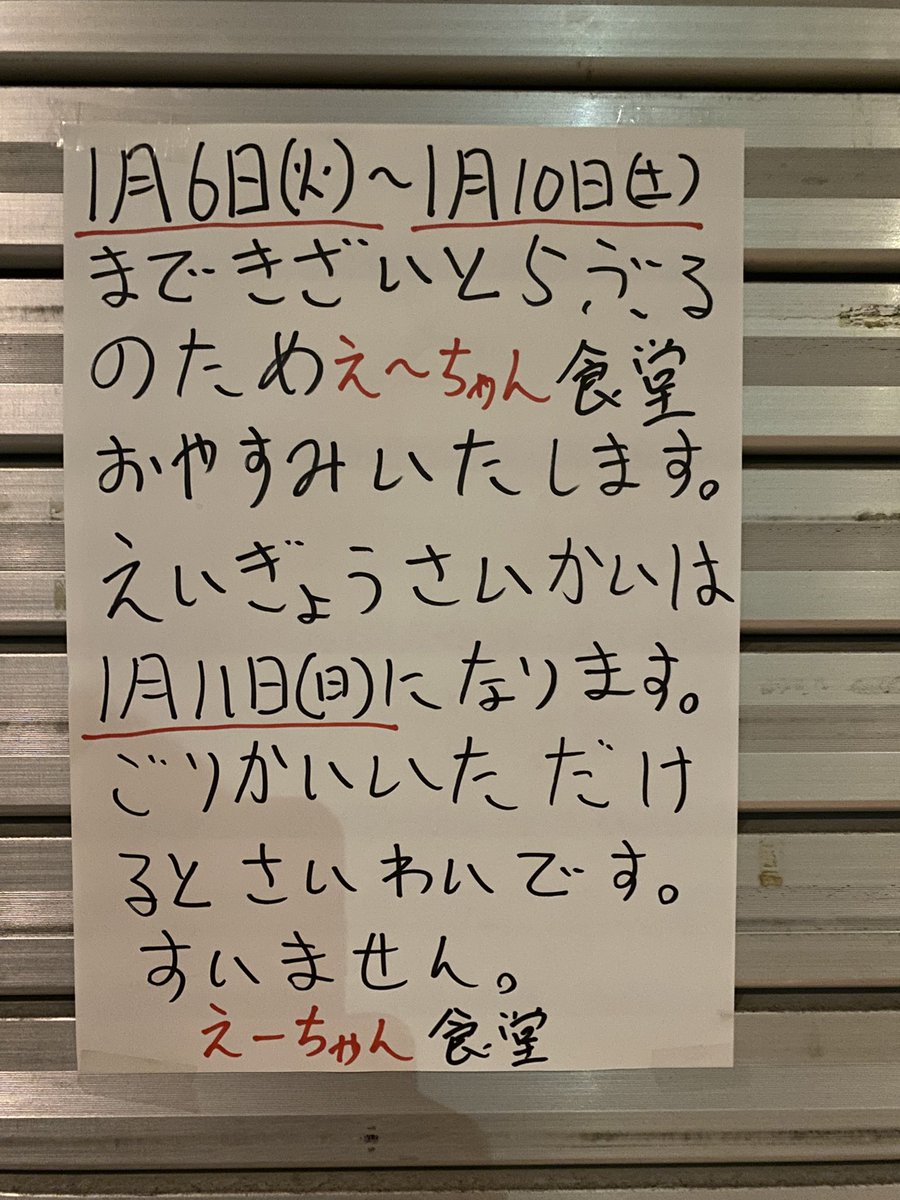 1月6日(火)〜1月10日(土)
まできざいとらぶる
のためえ〜ちゃん食堂
おやすみいたします。
えいぎょうさいかいは
1月11日(日)になります。
ごりかいいただけ
るとさいわいです。
すいません。
えーちゃん食堂